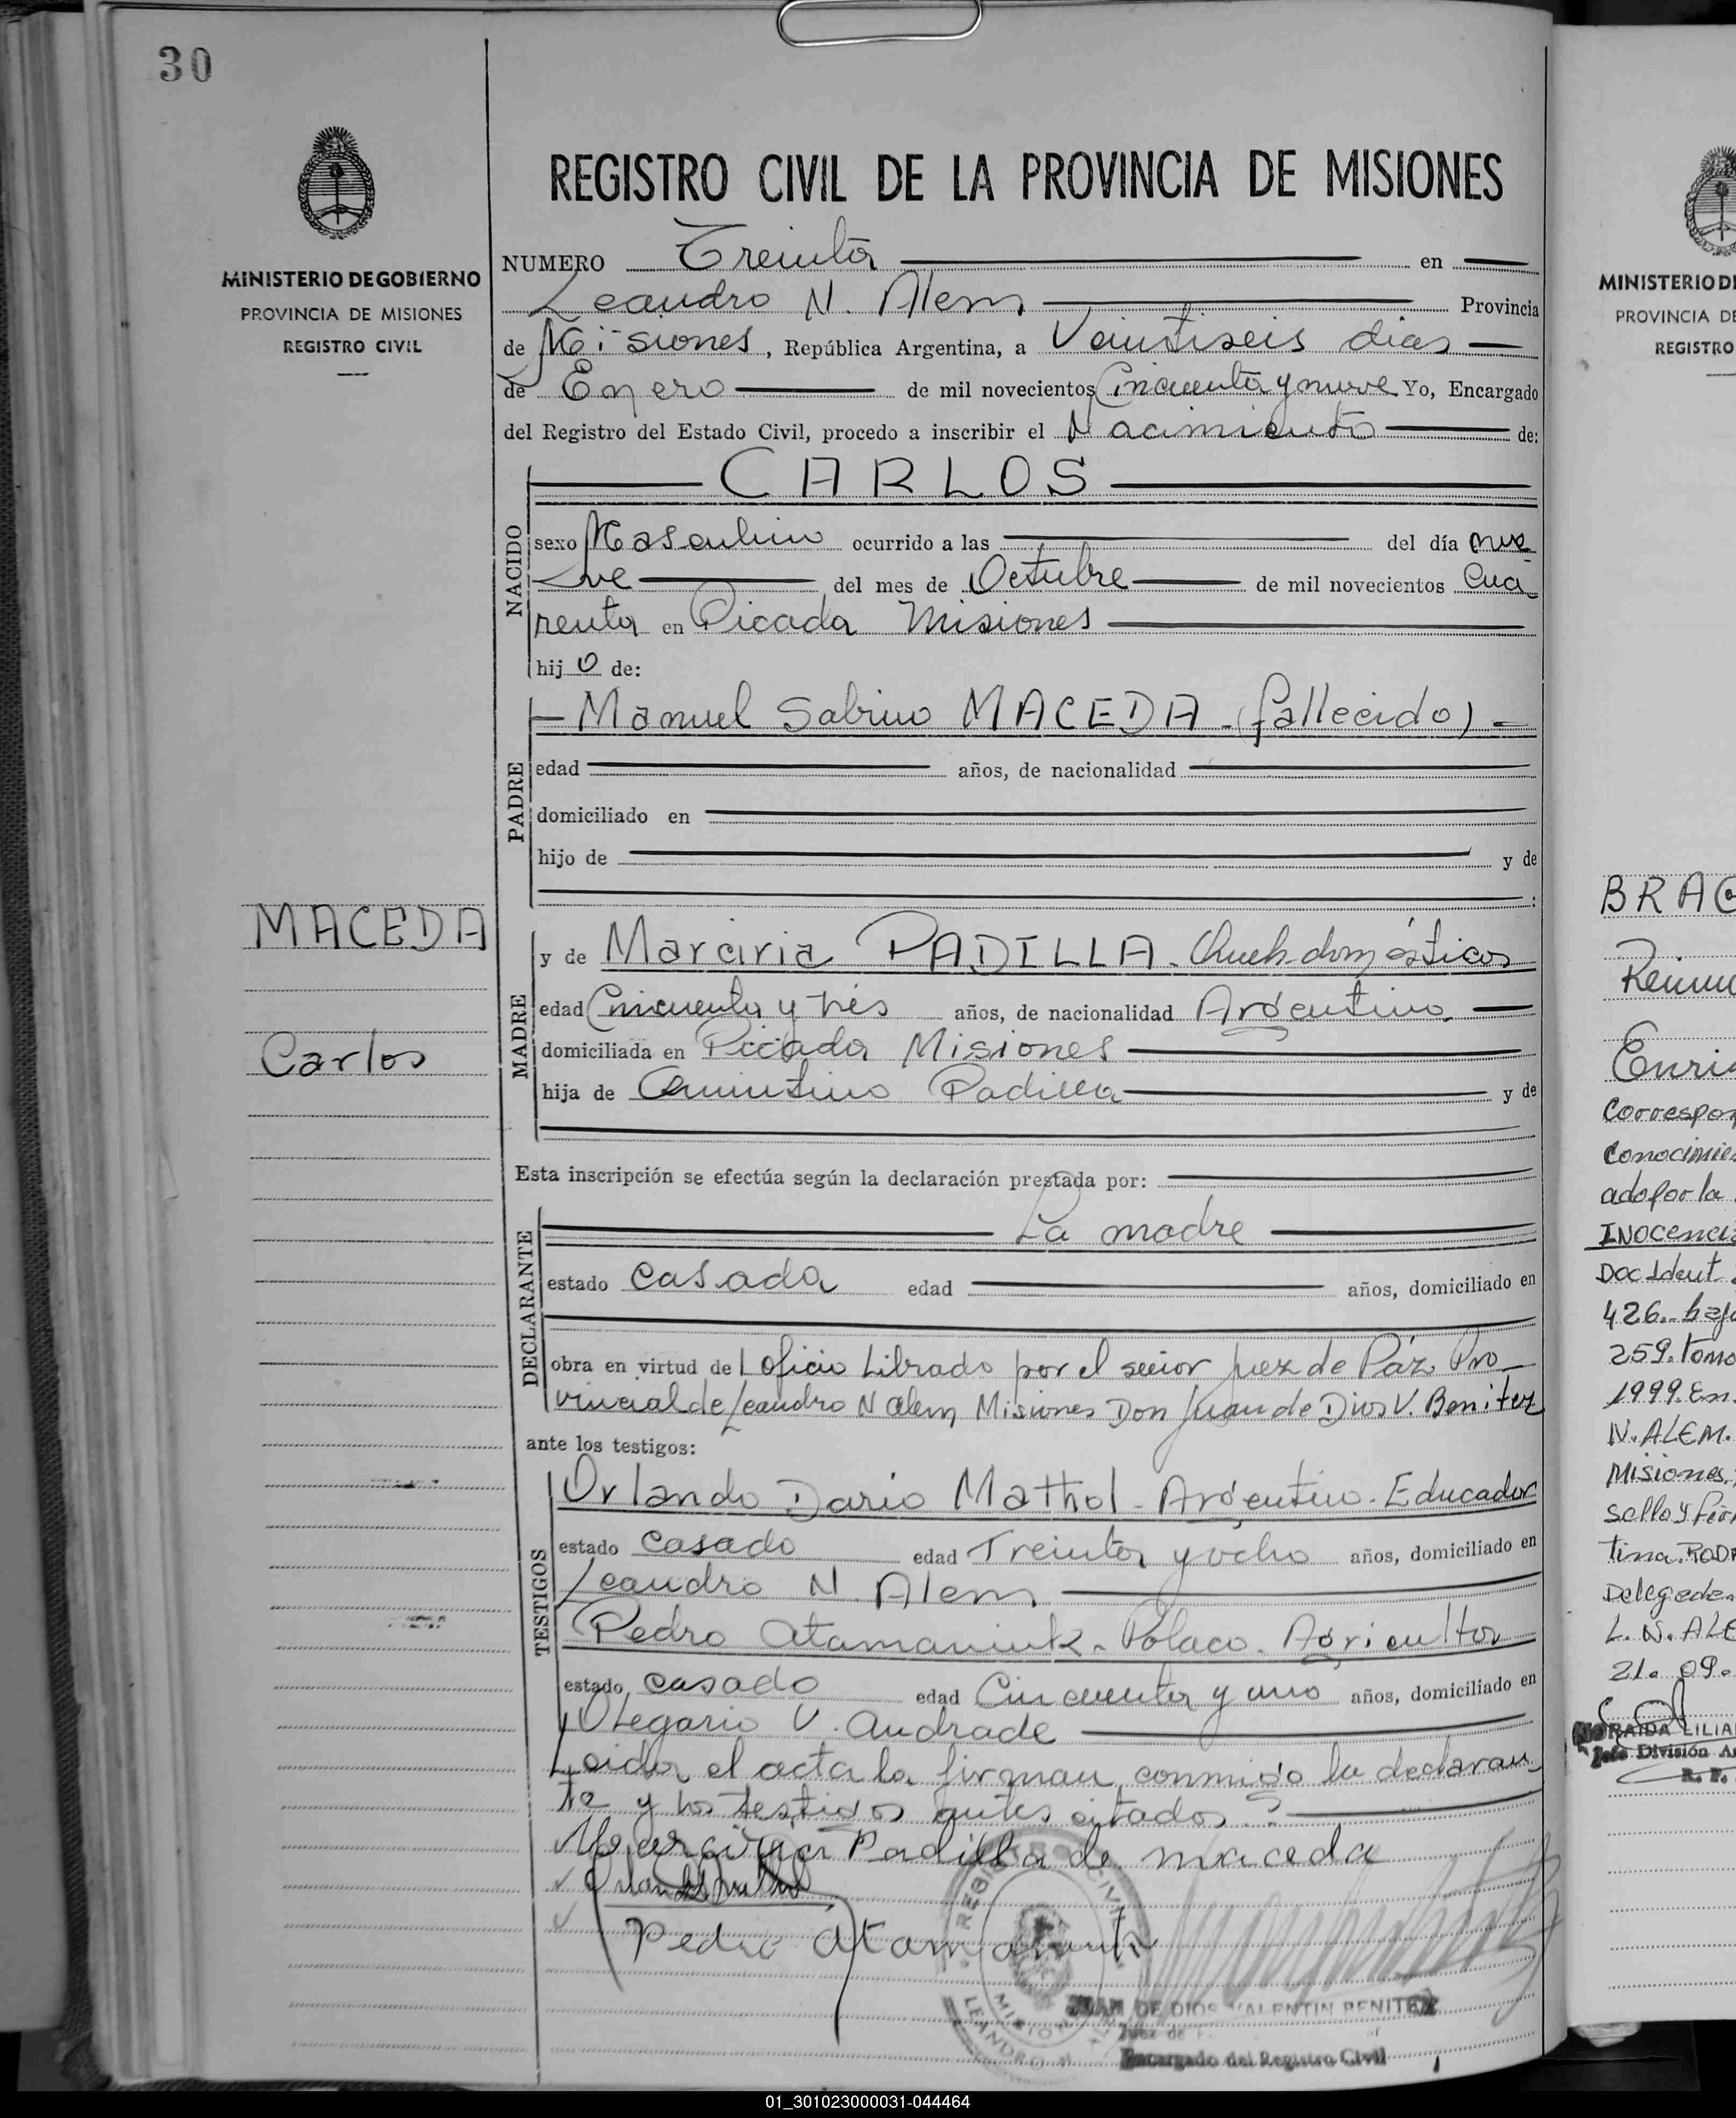 30
MINISTERIO DE GOBIERNO
PROVINCIA DE MISIONES
REGISTRO CIVIL
MACEDA
Carlos
REGISTRO CIVIL DE LA PROVINCIA DE MISIONES
NUMERO Treinta en
Leandro N. Alem Provincia
de Misiones, República Argentina, a Veintiseis dias
de Enero de mil novecientos Cincuenta y nueve Yo, Encargado
del Registro del Estado Civil, procedo a inscribir el Nacimiento de:
CARLOS
NACIDO
sexo Masculino ocurrido a las del día nue
ve del mes de Octubre de mil novecientos Cua
renta en Picada Misiones
hijo de:
PADRE
Manuel Sabino MACEDA - (fallecido)
edad años, de nacionalidad
domiciliado en
hijo de y de
MADRE
y de Marciria PADILLA - domésticos
edad Cincuenta y tres años, de nacionalidad Argentina
domiciliada en Picada Misiones
hija de Quintino Padilla y de
Esta inscripción se efectúa según la declaración prestada por:
DECLARANTE
La madre
estado casada edad años, domiciliado en
obra en virtud del Oficio Librado por el señor Juez de Páz Pro
vincial de Leandro N Alem Misiones Don Juan de Dios V. Benitez
ante los testigos:
TESTIGOS
Orlando Dario Mathol - Argentino - Educador
estado casado edad Treinta y ocho años, domiciliado en
Leandro N. Alem
Pedro Atamaniuk - Polaco - Agricultor
estado casado edad Cincuenta y uno años, domiciliado en
Olegario V. Andrade
Leida el acta la firman conmigo la declaran
te y los testigos antes citados
Padilla de maceda
Pedro Atamaniuk
REGISTRO CIVIL
LEANDRO N. ALEM
MISIONES
JUAN DE DIOS VALENTIN BENITEZ
Juez de
Encargado del Registro Civil
MINISTERIO DE
PROVINCIA DE
REGISTRO
BRAC
Enri
Correspon
Conocimie
ado por la
INOCENCIA
Doc Ident
426. bajo
259. Tomo
1999. En
N. ALEM.
Misiones,
sello y fir
Delegada
L. N. ALE
21. 09.
LILIA
Jefe División
01_301023000031-044464